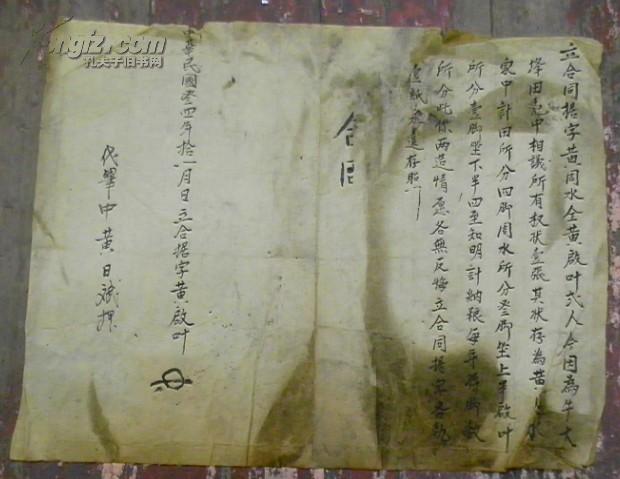 立合同据字黄周水仝黄啟叶弍人今因為牛大
烽田憑中相議所有契状壹張其状存為黄周水
家中計田所分四脚周水所分叁脚坐上半啟叶
所分壹脚坐下半四至知明計納粮每年照脚数
所分此係两造情愿各無反悔立合同据字各執
壹紙永遠存照
合同
中華民國叁四年拾一月日立合据字黄啟叶
代筆中黄日 押
Kongfz.com
孔夫子旧书网